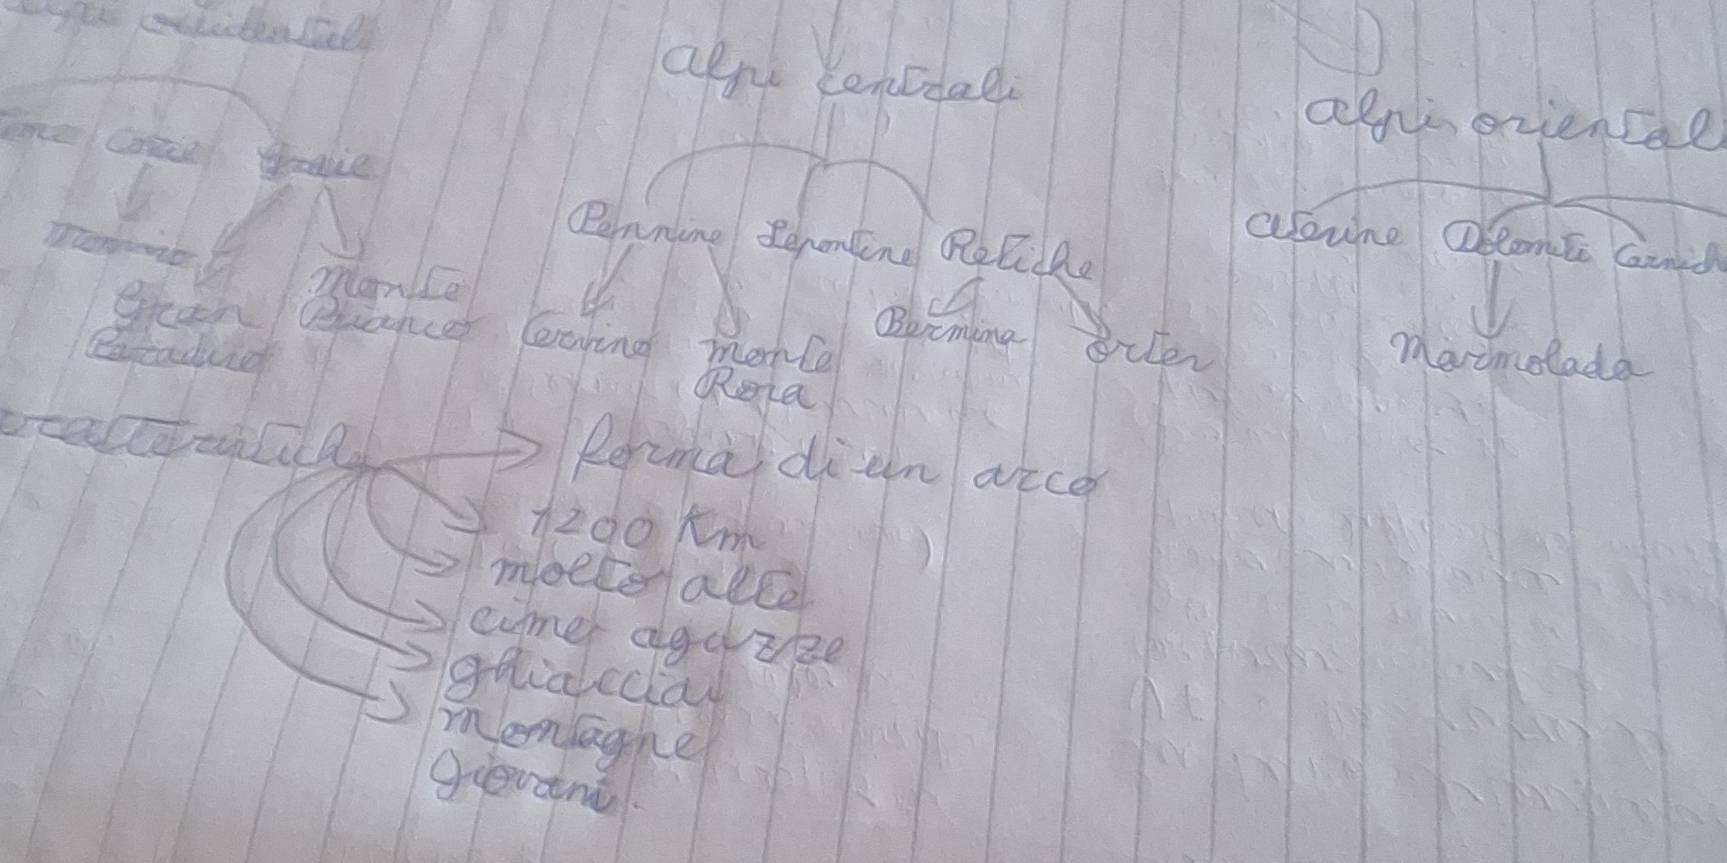 alpi occidentali
alpi centrali
alpi oriental
Cozie Graie
Monviso
Gran
Paradiso
Monte
Bianco
Pennine Lepontine Retiche
Cervino
monte
Rosa
Bernina
Orter
Dolomiti Carnich
Marmolada
caratteristich
forma di un arco
1200 Km
molto alte
cime aguzze
ghiacciai
montagne
giovani.